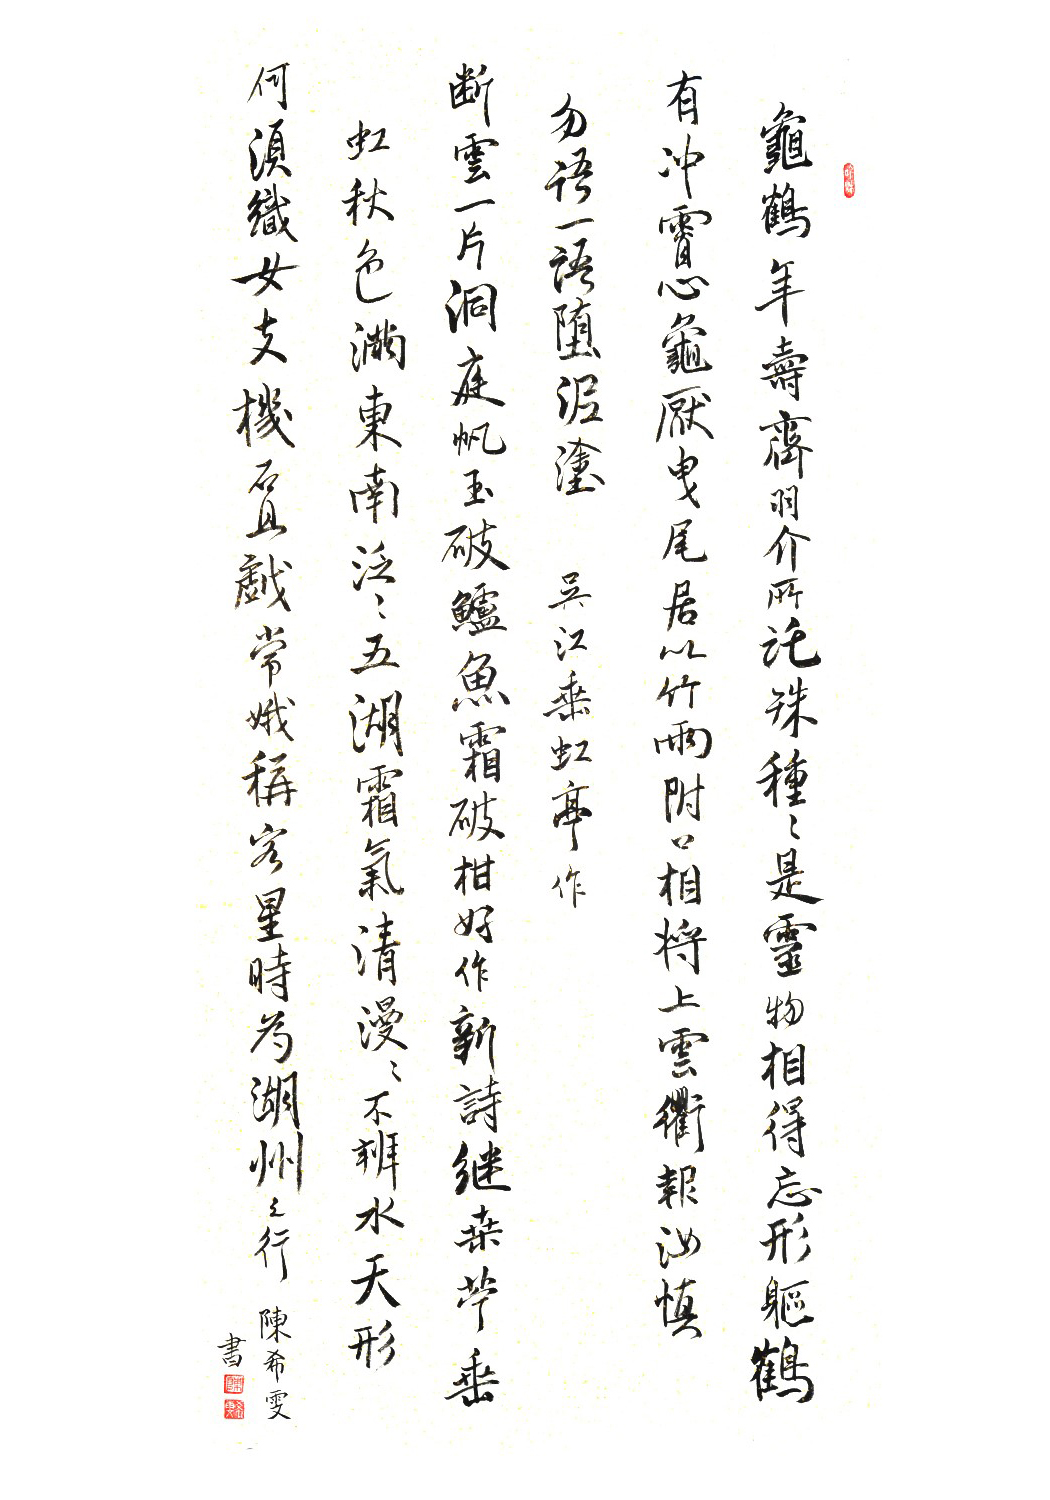 龜鶴年壽齊羽介所託殊種々是靈物相得忘形軀鶴
有冲霄心龜厭曳尾居以竹兩附口相將上雲衢報汝慎
勿語一語墮泥塗 吳江垂虹亭作
断雲一片洞庭帆玉破鱸魚霜破柑好作新詩継桑苧垂
虹秋色滿東南泛々五湖霜氣清漫々不辨水天形
何須織女支機石且戲常娥稱客星時為湖州之行
陳希雯
書